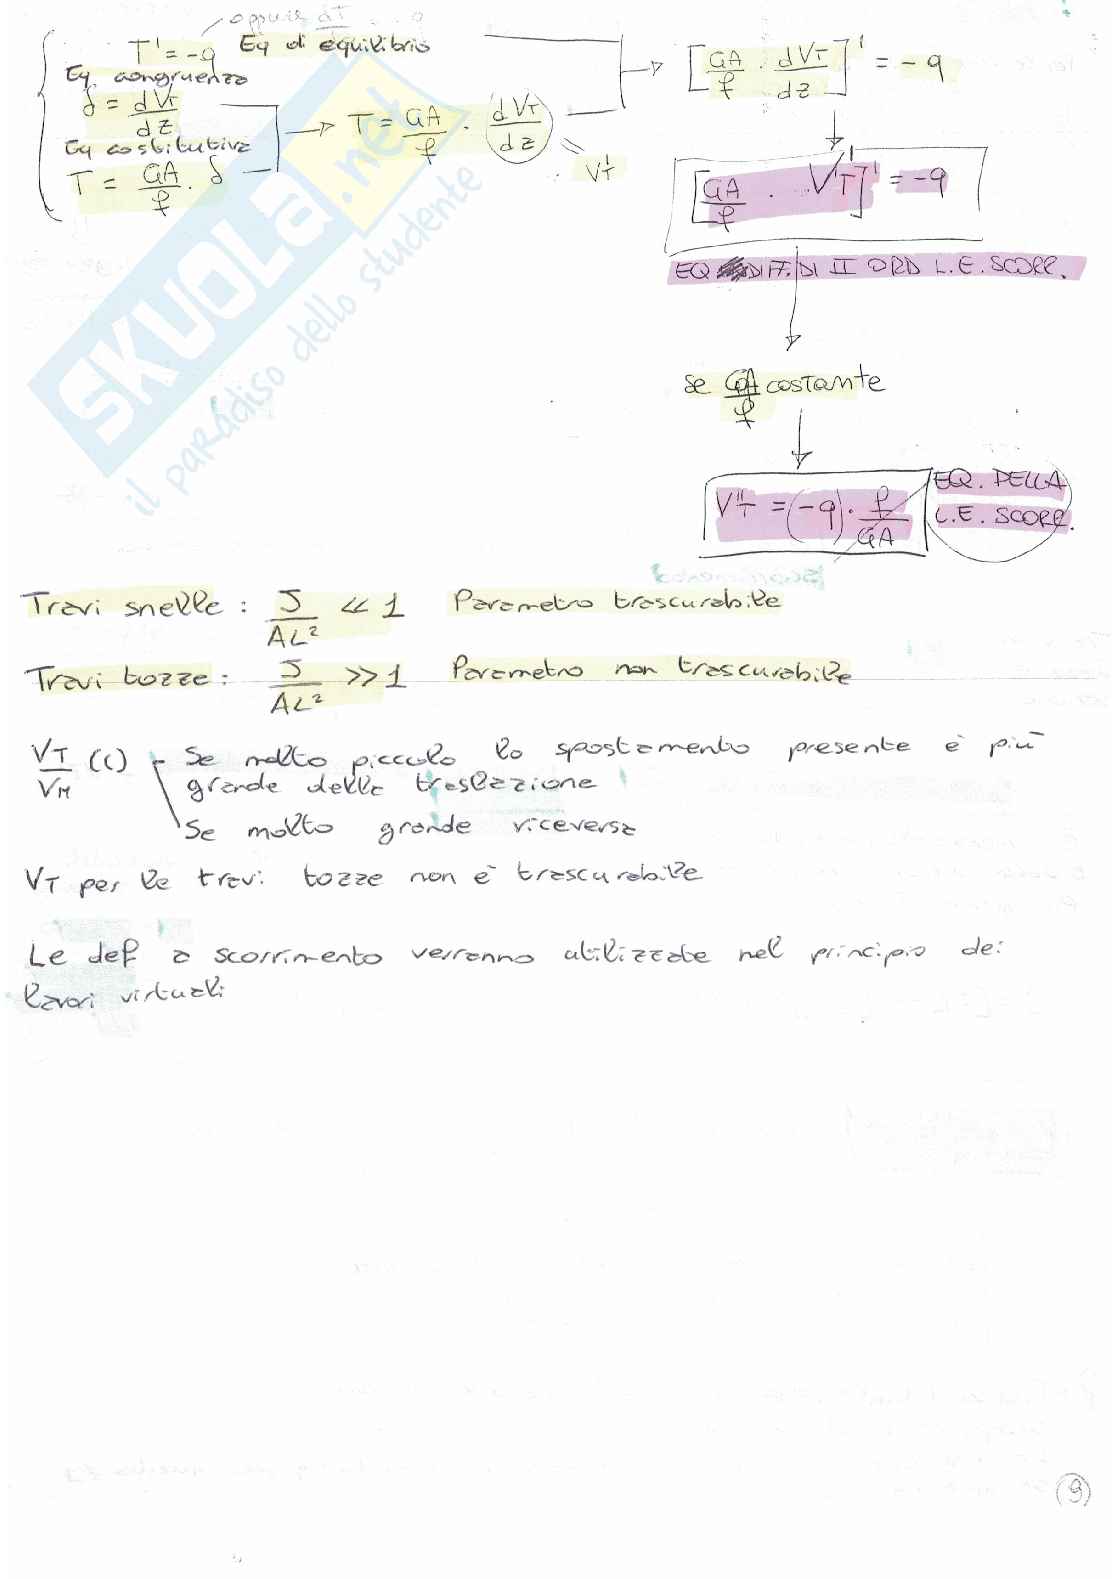 oppure dT
T' = -q Eq di equilibrio
Eq congruenza
δ = dVT/dz
Eq costitutiva
T = GA/f · δ
T = GA/f · dVT/dz
V'T
[GA/f · dVT/dz]' = -q
[GA/f · V'T]' = -q
EQ DIFF. DI II ORD L.E. SCORR.
se GA/f costante
V''T = (-q) · f/GA
EQ. DELLA
L.E. SCORR.
Travi snelle : J/AL² << 1 Parametro trascurabile
Travi tozze : J/AL² >> 1 Parametro non trascurabile
VT/VM (L) - Se molto piccolo lo spostamento presente è più
grande della traslazione
Se molto grande viceversa
VT per le travi tozze non è trascurabile
Le def a scorrimento verranno utilizzate nel principio dei
lavori virtuali
9
SKUOLA.net
il paradiso dello studente